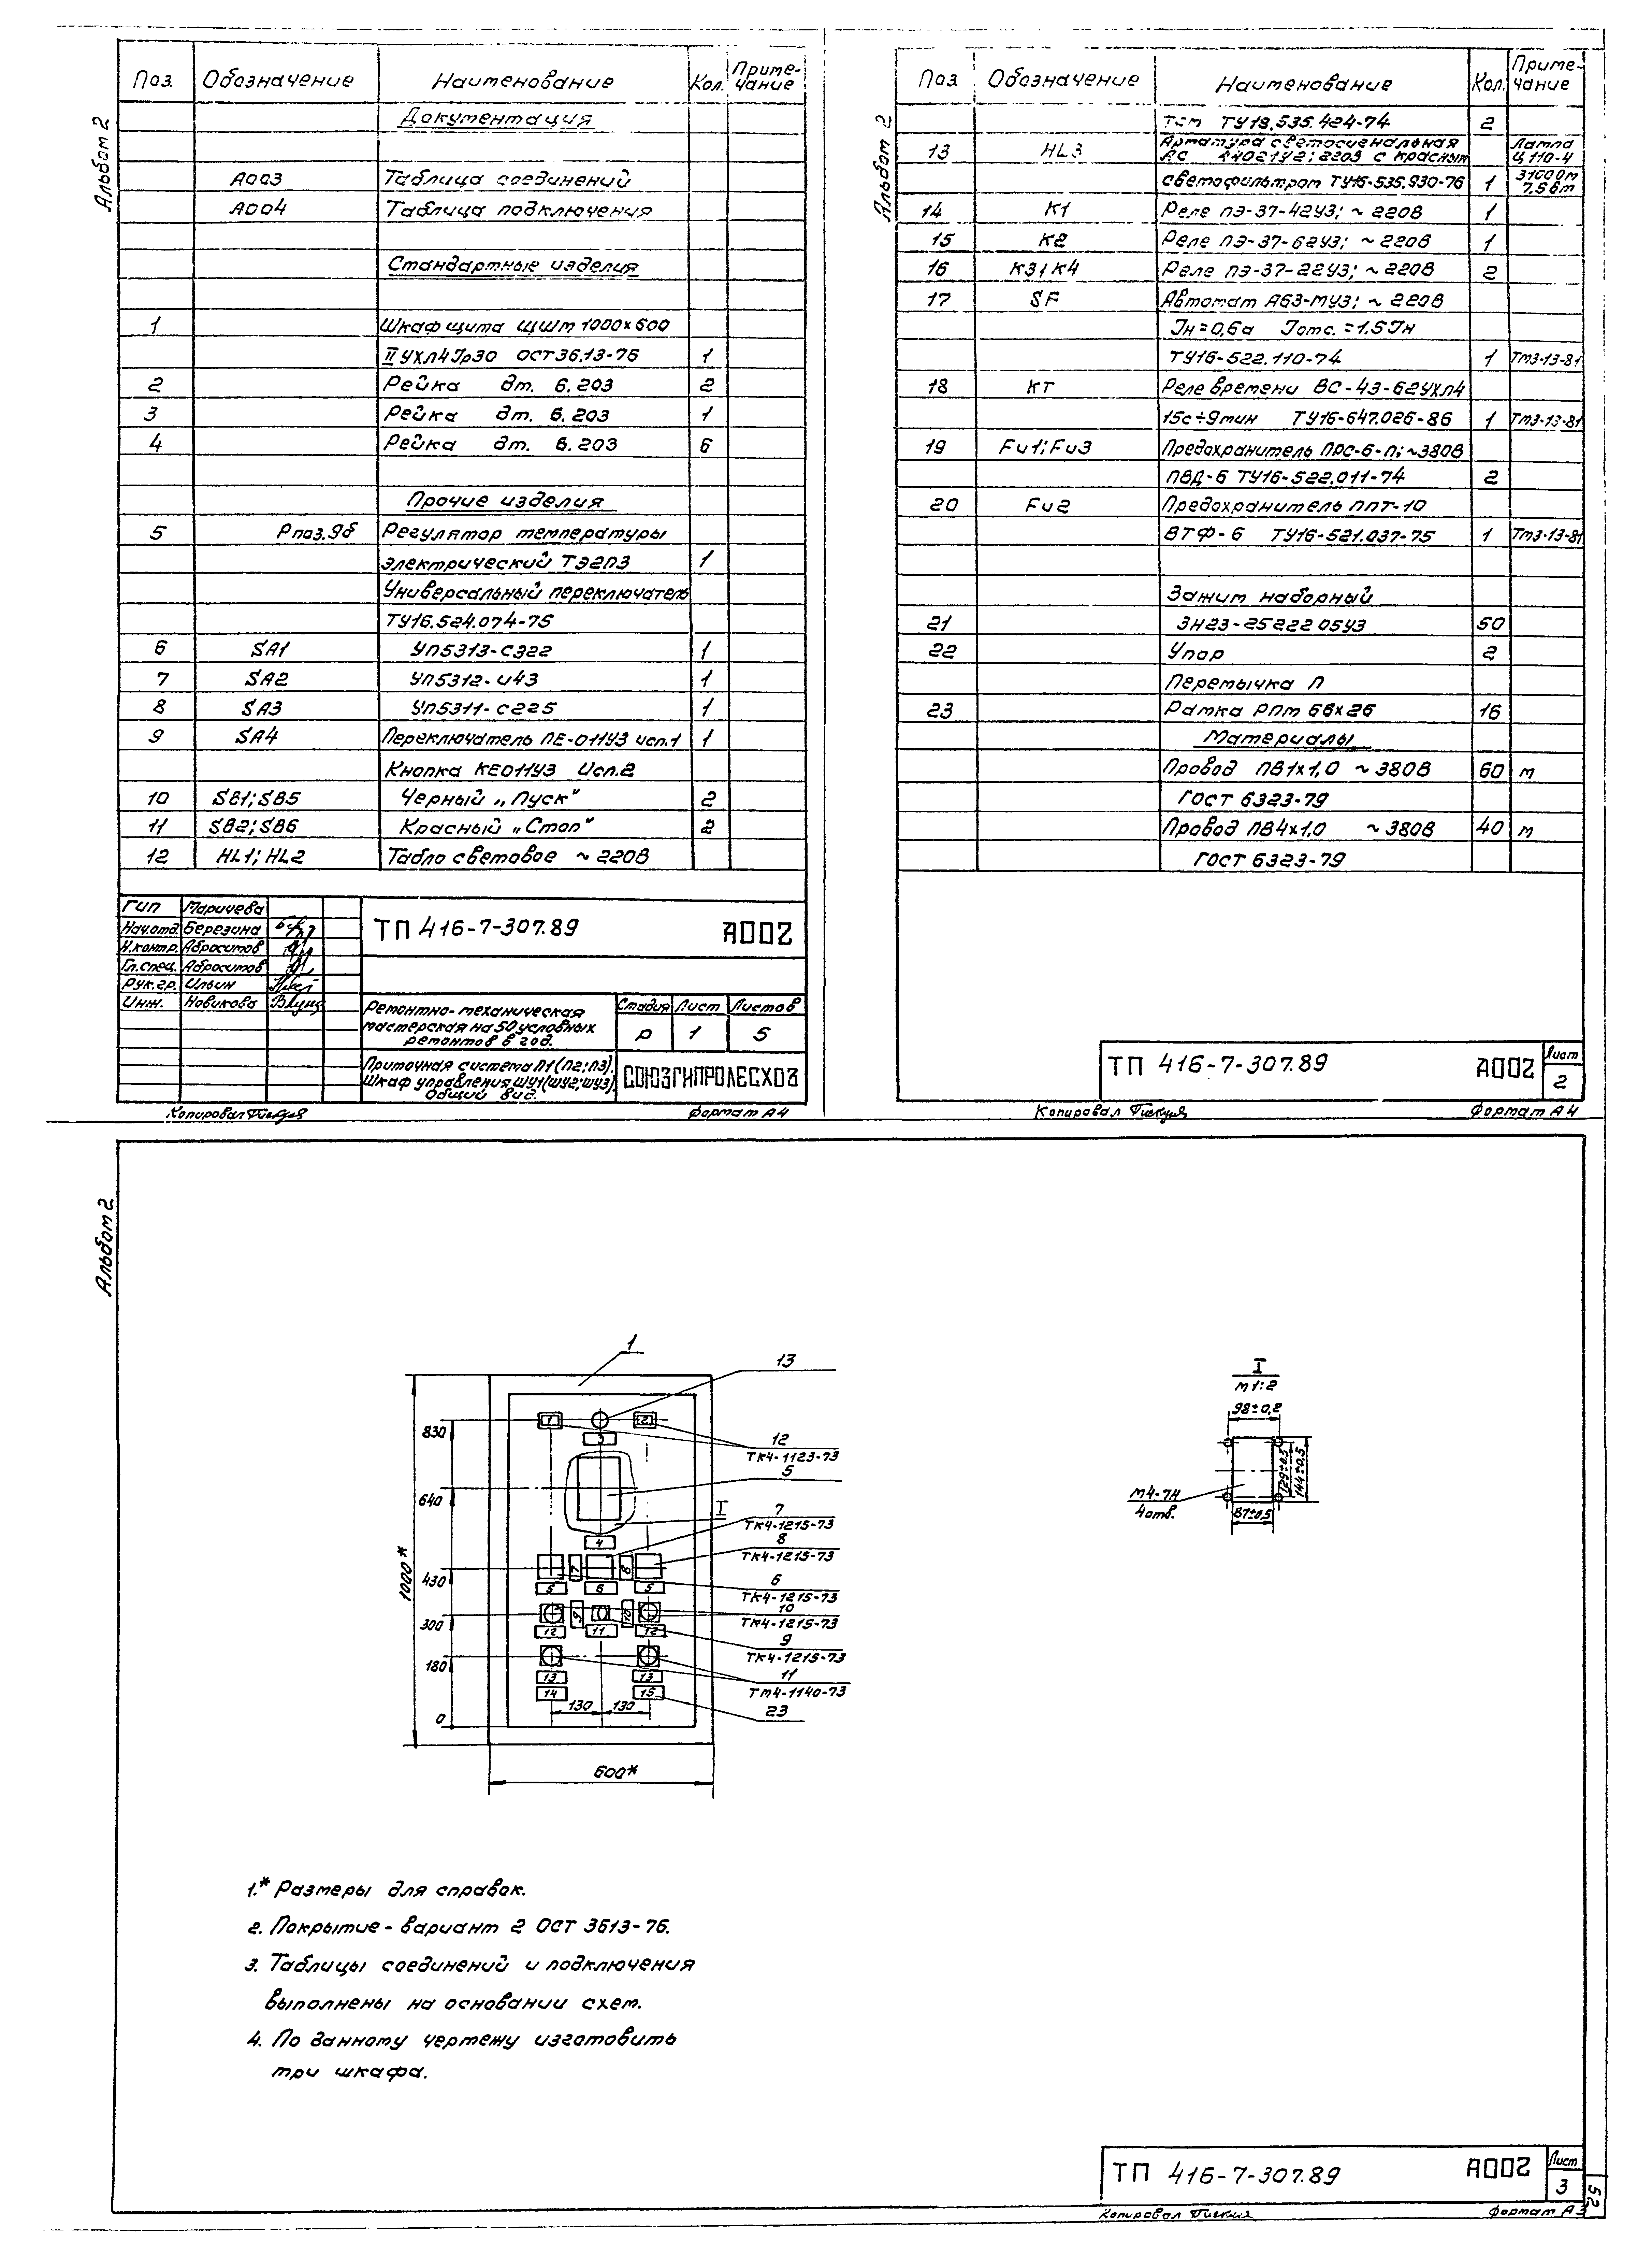 Альбом 2
Поз. Обозначение Наименование Кол. Приме-
чание
Документация
А003 Таблица соединений
А004 Таблица подключения
Стандартные изделия
1 Шкаф щита ЩШМ 1000х600
II УХЛ4 Jр30 ОСТ 36.13-76 1
2 Рейка дт. 6.203 2
3 Рейка дт. 6.203 1
4 Рейка дт. 6.203 6
Прочие изделия
5 Рпоз.9б Регулятор температуры
электрический ТЭ2П3 1
Универсальный переключатель
ТУ16.524.074-75
6 SA1 УП5313-С322 1
7 SA2 УП5312-И43 1
8 SA3 УП5311-С225 1
9 SA4 Переключатель ПЕ-011У3 исп.1 1
Кнопка КЕ011У3 Исп.2
10 SB1; SB5 Черный „Пуск" 2
11 SB2; SB6 Красный „Стоп" 2
12 HL1; HL2 Табло световое ~ 220В
ГИП Маричева
Нач.отд. Березина
Н.контр. Абросимов
Гл.спец. Абросимов
Рук.гр. Ильин
Инж. Новикова
ТП 416-7-307.89 А002
Ремонтно-механическая
мастерская на 50 условных
ремонтов в год.
Стадия Лист Листов
Р 1 5
Приточная система П1 (П2; П3).
Шкаф управления ШУ1 (ШУ2; ШУ3)
Общий вид.
СОЮЗГИПРОЛЕСХОЗ
Копировал Формат А4
Альбом 2
Поз. Обозначение Наименование Кол. Приме-
чание
ТСМ ТУ18.535.424-74 2
13 HL3 Арматура светосигнальная Лампа
АС 220В с красным Ц 110-4
светофильтром ТУ16-535.930-76 1 3100 Ом
7,5 Вт
14 К1 Реле ПЭ-37-42У3; ~ 220В 1
15 К2 Реле ПЭ-37-62У3; ~ 220В 1
16 К3; К4 Реле ПЭ-37-22У3; ~ 220В 2
17 SF Автомат А63-МУ3; ~ 220В
Jн = 0,6а Jотс. = 1.5 Jн
ТУ16-522.110-74 1 ТМ3-13-81
18 КТ Реле времени ВС-43-62УХЛ4
15с÷9мин ТУ16-647.026-86 1 ТМ3-13-81
19 Fu1; Fu3 Предохранитель ПРС-6-П; ~380В
ПВД-6 ТУ16-522.011-74 2
20 Fu2 Предохранитель ППТ-10
ВТФ-6 ТУ16-521.037-75 1 ТМ3-13-81
Зажим наборный
21 ЗН23-2522205У3 50
22 Упор 2
Перемычка П
23 Рамка РПМ 66х26 16
Материалы
Провод ПВ1х1,0 ~ 380В 60 м
ГОСТ 6323-79
Провод ПВ4х1,0 ~ 380В 40 м
ГОСТ 6323-79
ТП 416-7-307.89 А002 Лист
2
Копировал Формат А4
Альбом 2
1
13
12
ТК4-1123-73
5
I
7
ТК4-1215-73
8
ТК4-1215-73
6
ТК4-1215-73
10
ТК4-1215-73
9
ТК4-1215-73
11
ТМ4-1140-73
23
830
640
430
300
180
0
1000*
600*
130 130
1 2
3
4
7 8
5 6 5
9 10
12 11 12
13 13
14 15
I
М1:2
98±0,2
129±0,3
144±0,5
87±0,5
М4-7Н
4 отв.
1.* Размеры для справок.
2. Покрытие - вариант 2 ОСТ 3613-76.
3. Таблицы соединений и подключения
выполнены на основании схем.
4. По данному чертежу изготовить
три шкафа.
ТП 416-7-307.89 А002 Лист
3
52
Копировал Формат А3